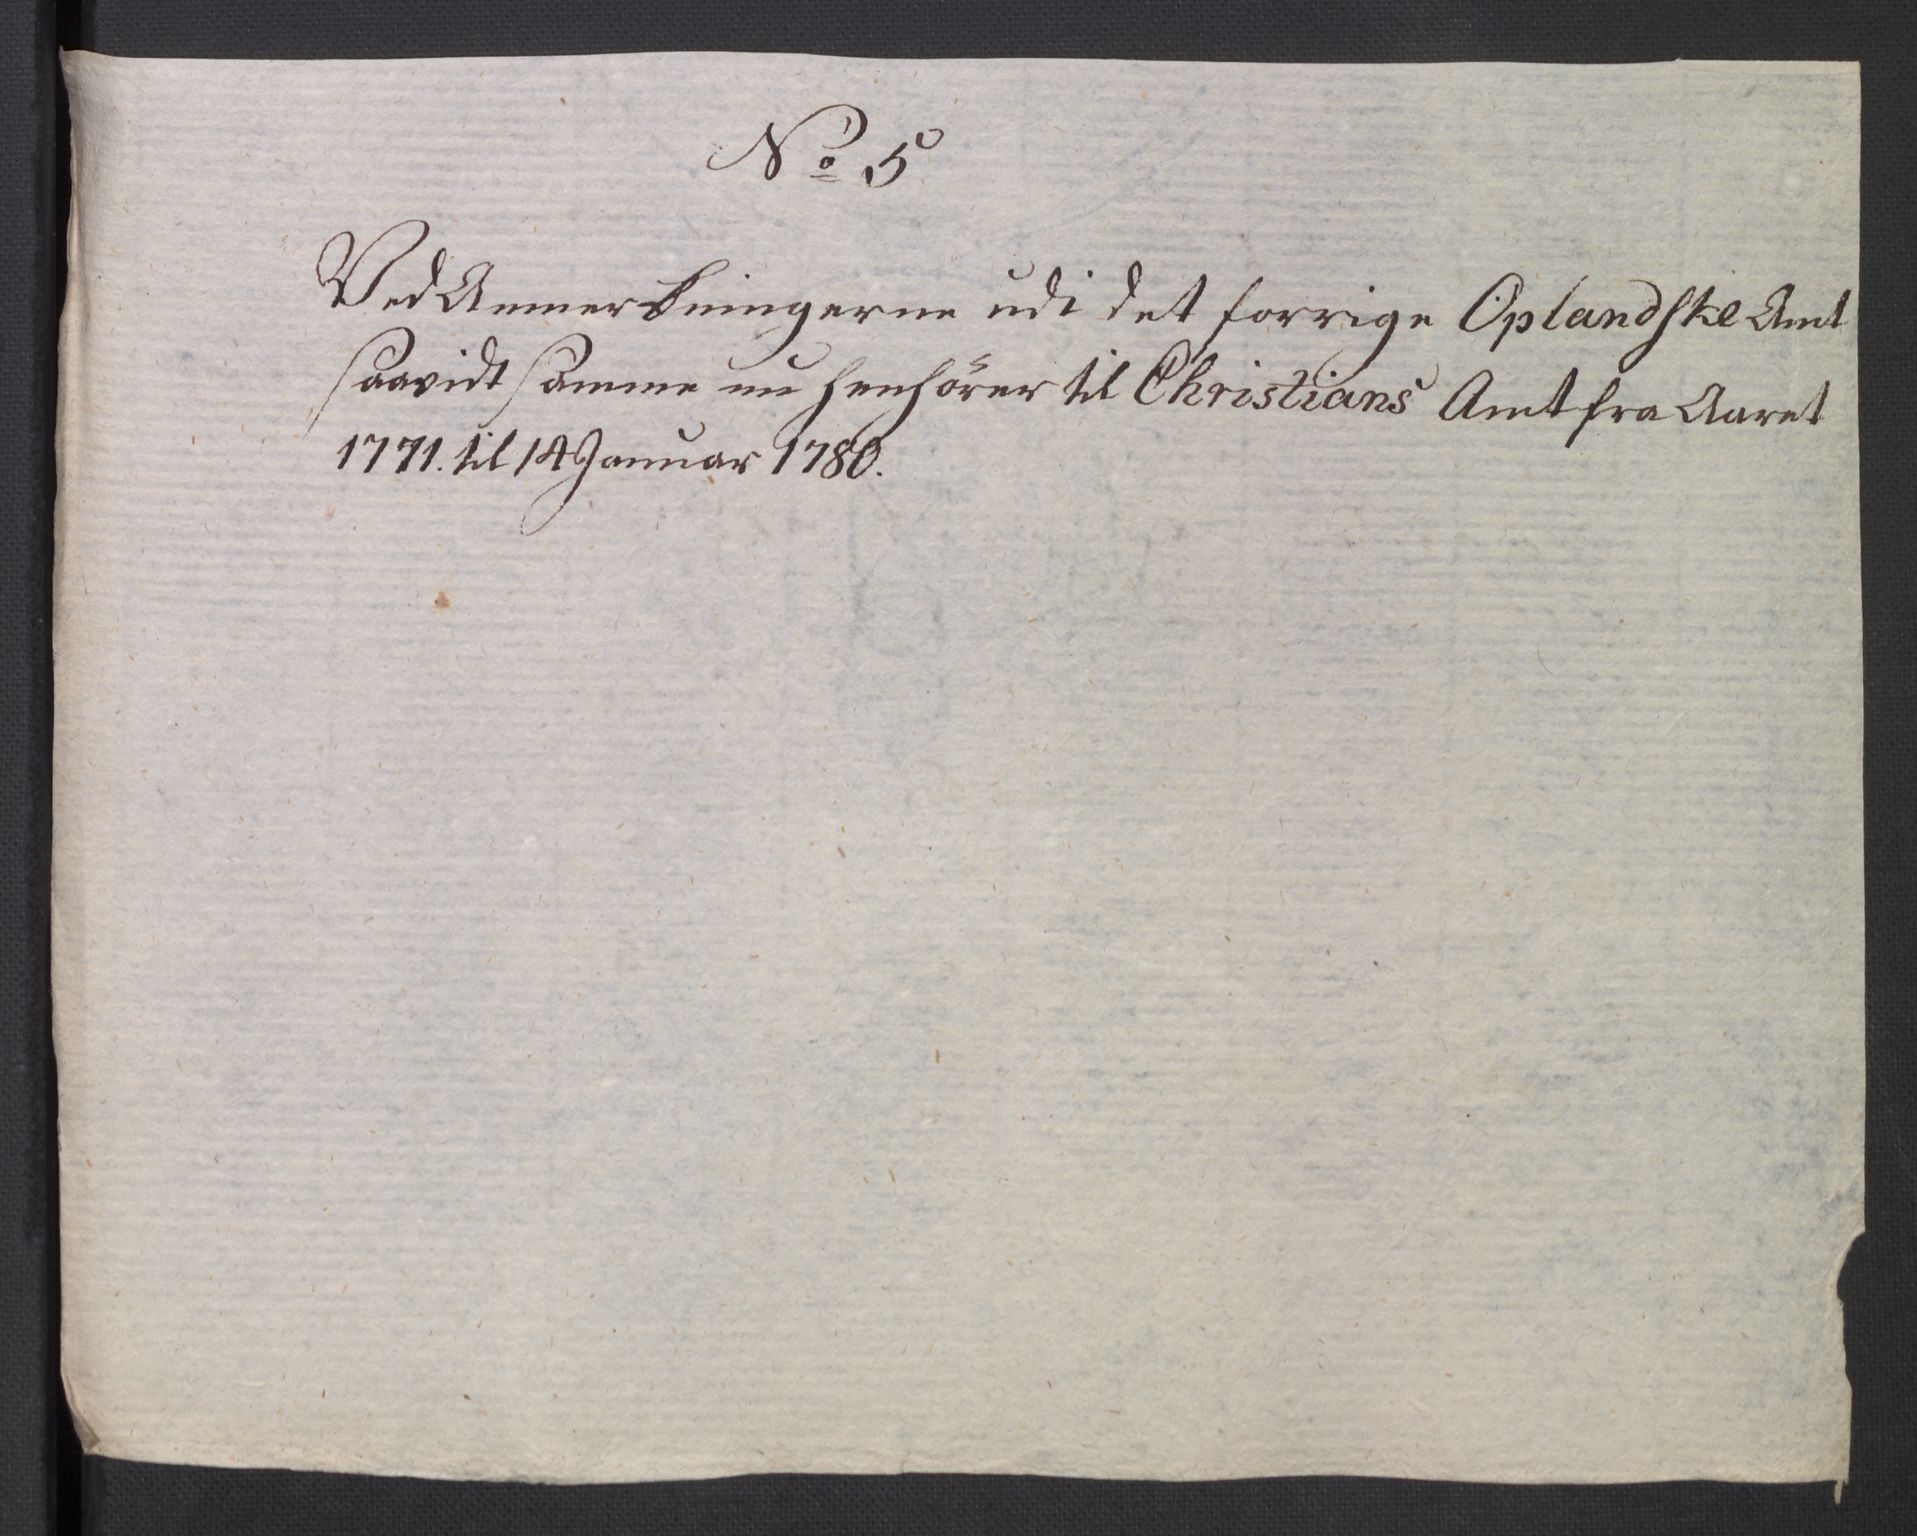 No 5
Ved Anmerkningerne udi det forrige Oplandske Amt
saavidt samme nu henhörer til Christians Amt fra Aaret
1771. til 14 Januar 1780.